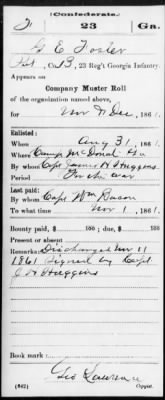 (Confederate.)
F 23 Ga.
G E Foster
Pvt, Co. B, 23 Reg't Georgia Infantry.
Appears on
Company Muster Roll
of the organization named above,
for Nov & Dec, 1861.
Enlisted:
When Aug 31, 1861.
Where Camp McDonald Ga
By whom Capt James N Huggins
Period For the war
Last paid:
By whom Capt Wm Bacon
To what time Nov 1, 1861.
Bounty paid $ 100; due $ 100
Present or absent
Remarks: Discharged Nov 11
1861 Signed by Capt
J. N Huggins
Book mark:
(642) Geo Lawrence
Copyist.